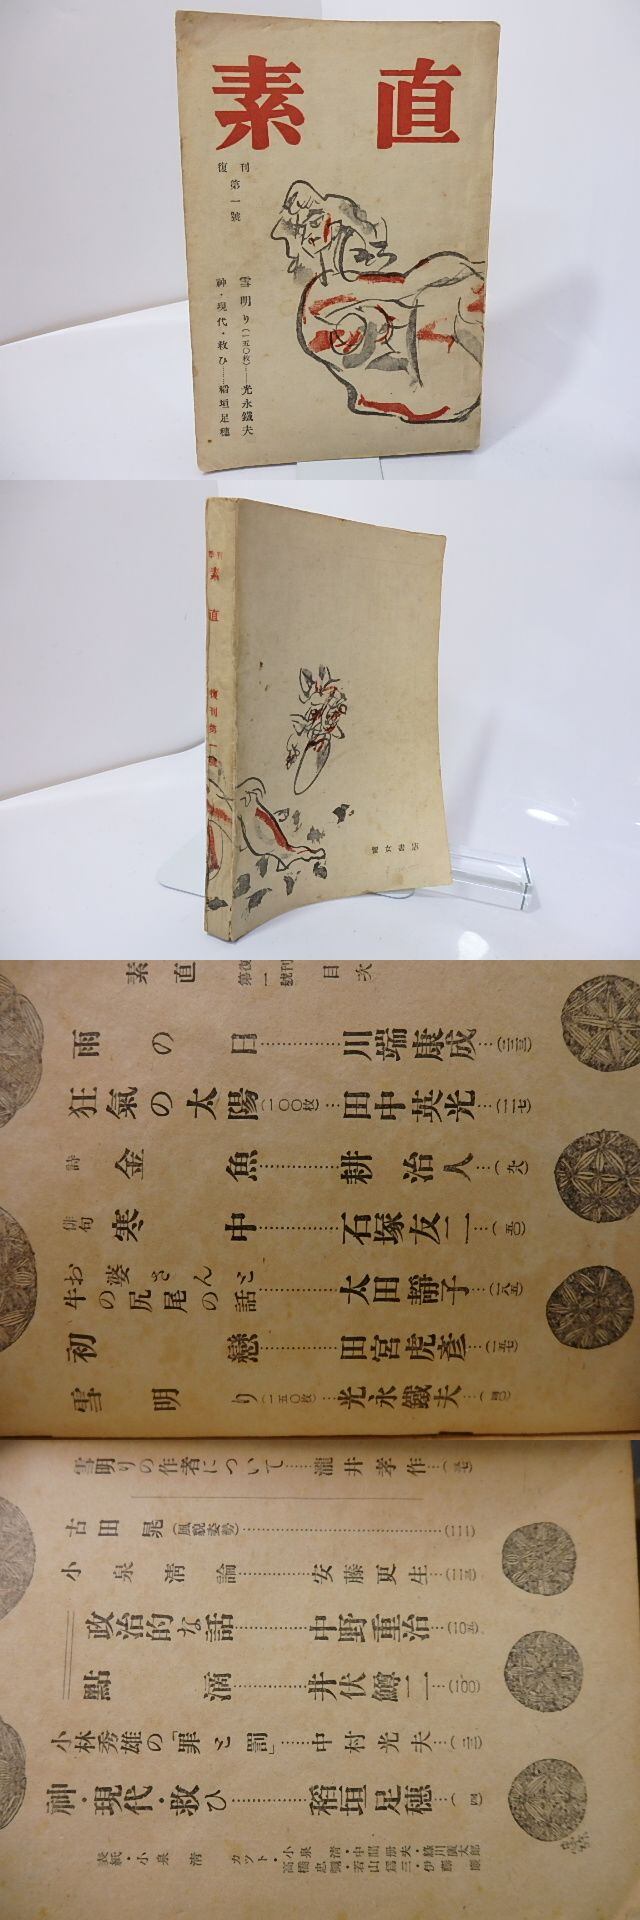 素直
復刊
第一號
雪明り(一五〇枚)—光永鐵夫
神・現代・救ひ……稻垣足穗
季刊
素直
復刊第一號
素直 復刊第一號 目次
雨の日…………川端康成…(三三)
狂氣の太陽(一〇〇枚)…田中英光…(一一七)
詩 金魚…………耕治人…(九八)
俳句 寒中…………石塚友二…(五〇)
お婆さんと牛の尻尾の話……太田靜子…(一八五)
初戀…………田宮虎彦…(一五七)
雪明り(一五〇枚)…光永鐵夫
雪明りの作者について……瀧井孝作
古田晁(風貌姿勢)
小泉淸論……安藤更生
政治的な話……中野重治…(一〇五)
點滴……井伏鱒二…(一〇〇)
小林秀雄の「罪と罰」……中村光夫…(一三)
神・現代・救ひ……稻垣足穗…(四)
表紙・小泉淸
カット・小泉淸